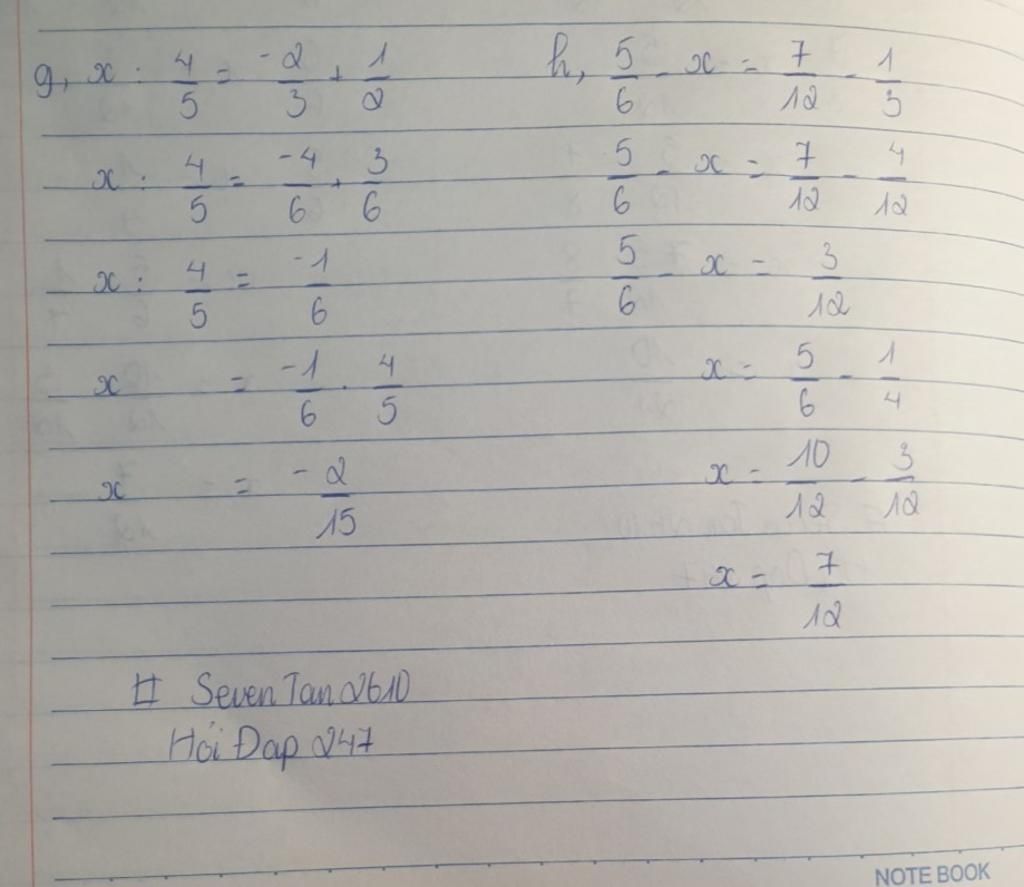 g, x : 4/5 = -2/3 + 1/2
x : 4/5 = -4/6 + 3/6
x : 4/5 = -1/6
x = -1/6 . 4/5
x = -2/15
h, 5/6 - x = 7/12 - 1/3
5/6 - x = 7/12 - 4/12
5/6 - x = 3/12
x = 5/6 - 1/4
x = 10/12 - 3/12
x = 7/12
# SevenTan2610
Hỏi Đap 247
NOTE BOOK